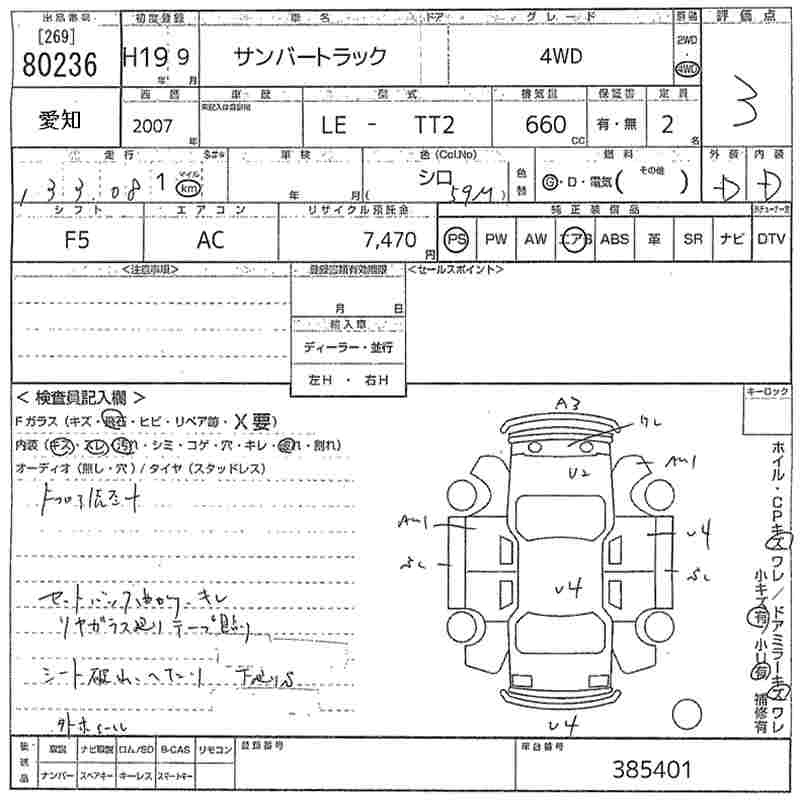 出品番号 初度登録 車名 ドア グレード 駆動 評価点
[269]
80236 H19 9 サンバートラック 4WD 2WD・4WD 3
年 月
西暦 車歴 型式 排気量 保証書 定員
愛知 2007 年 LE - TT2 660 CC 有・無 2 名
走行 車検 色(Col.No) 燃料 外装 内装
133.081 マイル km 年 月 シロ 59M 色替 G・D・電気( その他 ) D D
シフト エアコン リサイクル預託金 純正装備品
F5 AC 7,470 円 PS PW AW エアB ABS 革 SR ナビ DTV
<注意事項> 登録書類有効期限 <セールスポイント>
月 日
輸入車
ディーラー・並行
左H・右H
<検査員記入欄> キーロック
Fガラス(キズ・飛石・ヒビ・リペア跡・X要)
内装(キズ・スレ・汚れ・シミ・コゲ・穴・キレ・破れ・割れ)
オーディオ(無し・穴)/タイヤ(スタッドレス)
A3
U2
AU1
AU1
U4
U4
U4
リヤガラス廻りテープ貼り
シート破れ、へたり 下廻りS
ホイル・CPキズ ワレ/ドアミラーキズ ワレ
小キズ有/小U有 補修有
後送品 取説 ナビ取説 ロム/SD B-CAS リモコン 登録番号 車台番号
ナンバー スペアキー キーレス スマートキー 385401